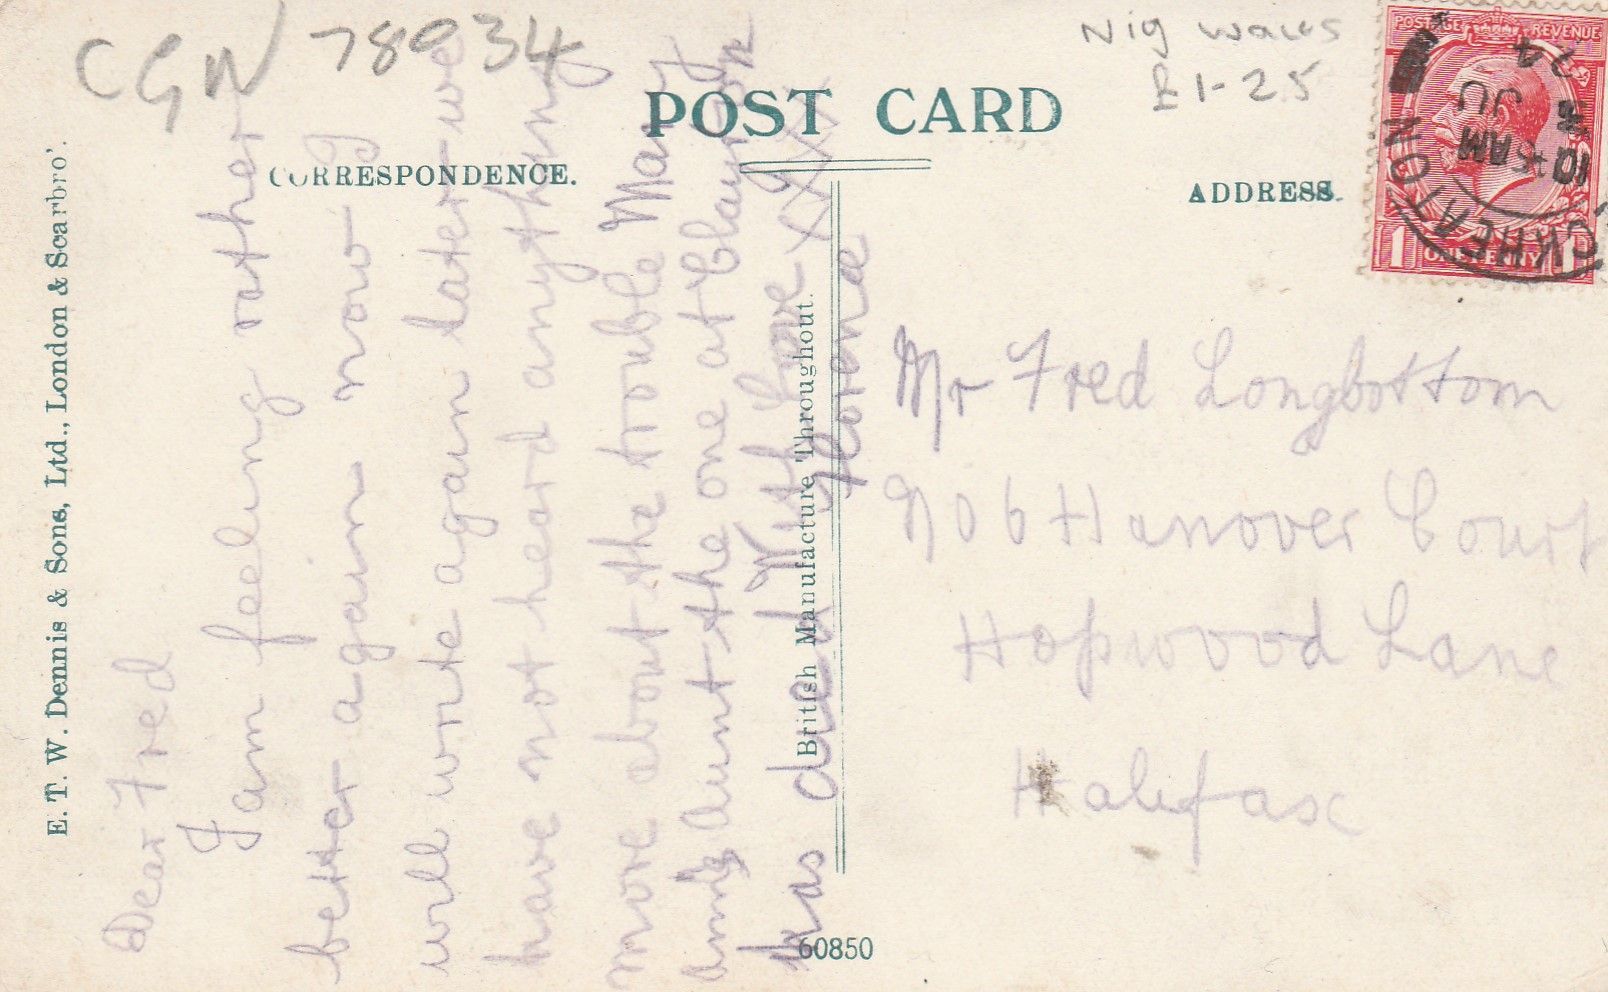 CGN 78934
Nig Wales
£1-25
POST CARD
CORRESPONDENCE.
ADDRESS.
POSTAGE REVENUE
1 ONE PENNY 1
CKHEATON
10 15 AM
JU
24
E. T. W. Dennis & Sons, Ltd., London & Scarbro'.
Dear Fred
I am feeling rather
better again now
will write again later we
have not heard anything
more about the trouble Mary
Aunt the one at
has died With Love XXX
Florence
British Manufacture Throughout.
60850
Mr Fred Longbottom
No 6 Hanover Court
Hopwood Lane
Halifax